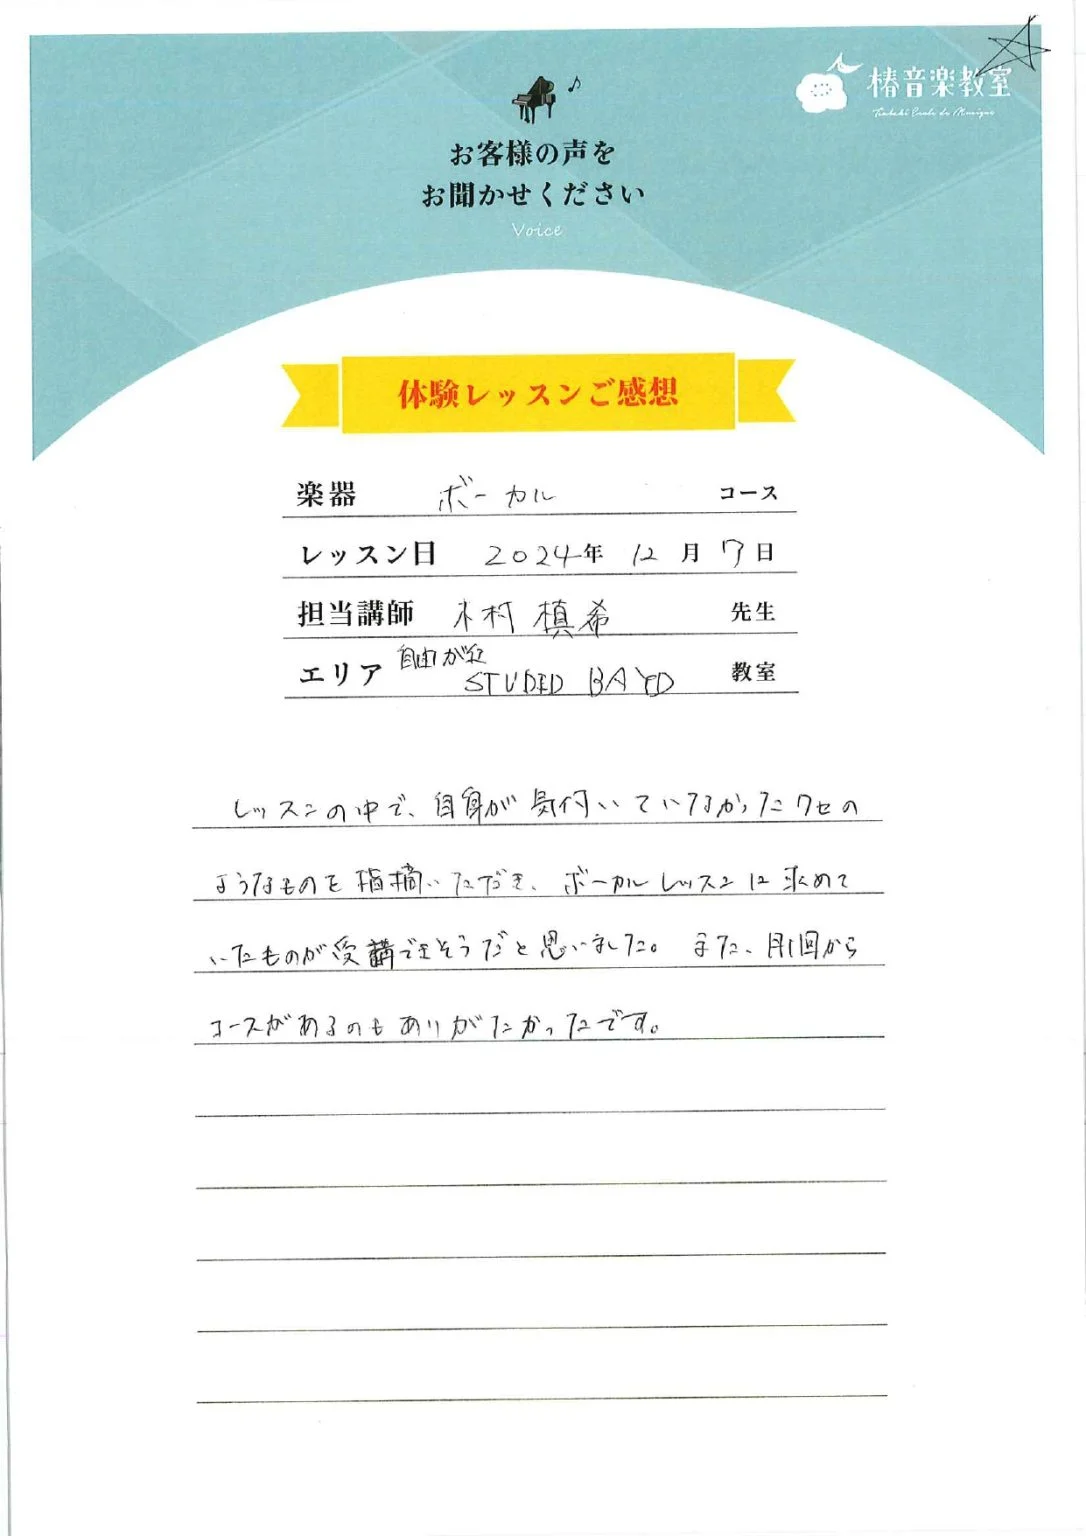 椿音楽教室
Tsubaki Ecole de Musique
お客様の声を
お聞かせください
Voice
体験レッスンご感想
楽器 ボーカル コース
レッスン日 2024年 12月 7日
担当講師 木村 槙希 先生
エリア 自由が丘 STUDIO BAYD 教室
レッスンの中で、自身が気付いていなかったクセの
ようなものを指摘いただき、ボーカルレッスンに求めて
いたものが受講できそうだと思いました。また、月1回から
コースがあるのもありがたかったです。